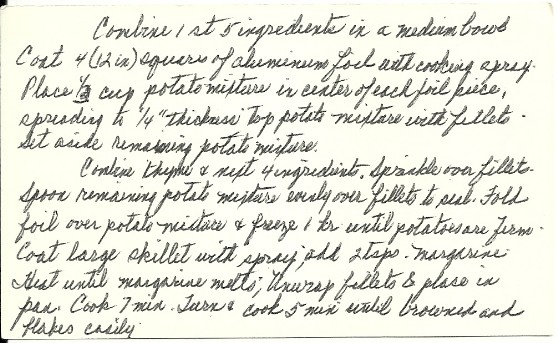 Combine 1st 5 ingredients in a medium bowl
Coat 4 (12 in) squares of alumineum foil with cooking spray.
Place 1/3 cup potato mixture in center of each foil piece,
spreading to 1/4" thickness top potato mixture with fillets.
Set aside remaining potato mixture.
Combine thyme & next 4 ingredients. Sprinkle over fillets.
Spoon remaining potato mixture evenly over fillets to seal. Fold
foil over potato mixture & freeze 1 hr until potatoes are firm.
Coat large skillet with spray, add 2 tsps. margarine.
Heat until margarine melts; Unwrap fillets & place in
pan. Cook 7 min. Turn & cook 5 min until browned and
flakes easily.